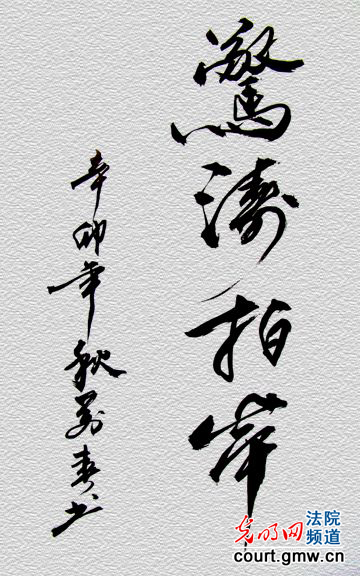 驚濤拍岸
辛卯年秋萬春书
光明网
法院
频道
court.gmw.cn